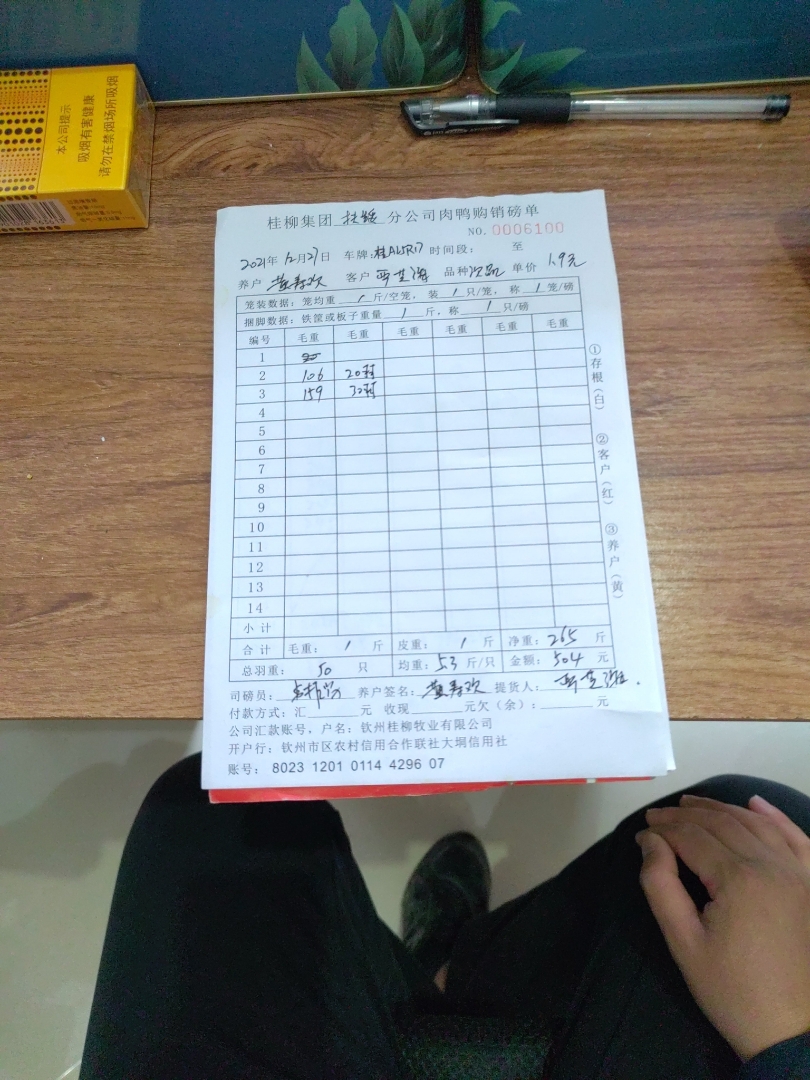 本公司提示
吸烟有害健康
请勿在禁烟场所吸烟
桂柳集团 扶绥 分公司肉鸭购销磅单
NO. 0006100
2021年 12月27日 车牌: 时间段: 至
养户 黄寿欢 客户 品种 单价 1.9元
笼装数据: 笼均重 / 斤/空笼, 装 / 只/笼, 称 / 笼/磅
捆脚数据: 铁筐或板子重量 / 斤, 称 / 只/磅
编号 毛重 毛重 毛重 毛重 毛重 毛重
1
2 106 20羽
3 159 30羽
4
5
6
7
8
9
10
11
12
13
14
小计
合计 毛重: / 斤 皮重: / 斤 净重: 265 斤
总羽重: 50 只 均重: 5.3 斤/只 金额: 504 元
司磅员: 养户签名: 黄寿欢 提货人:
付款方式: 汇 元 收现 元欠(余): 元
公司汇款账号, 户名: 钦州桂柳牧业有限公司
开户行: 钦州市区农村信用合作联社大垌信用社
账号: 8023 1201 0114 4296 07
①存根(白) ②客户(红) ③养户(黄)